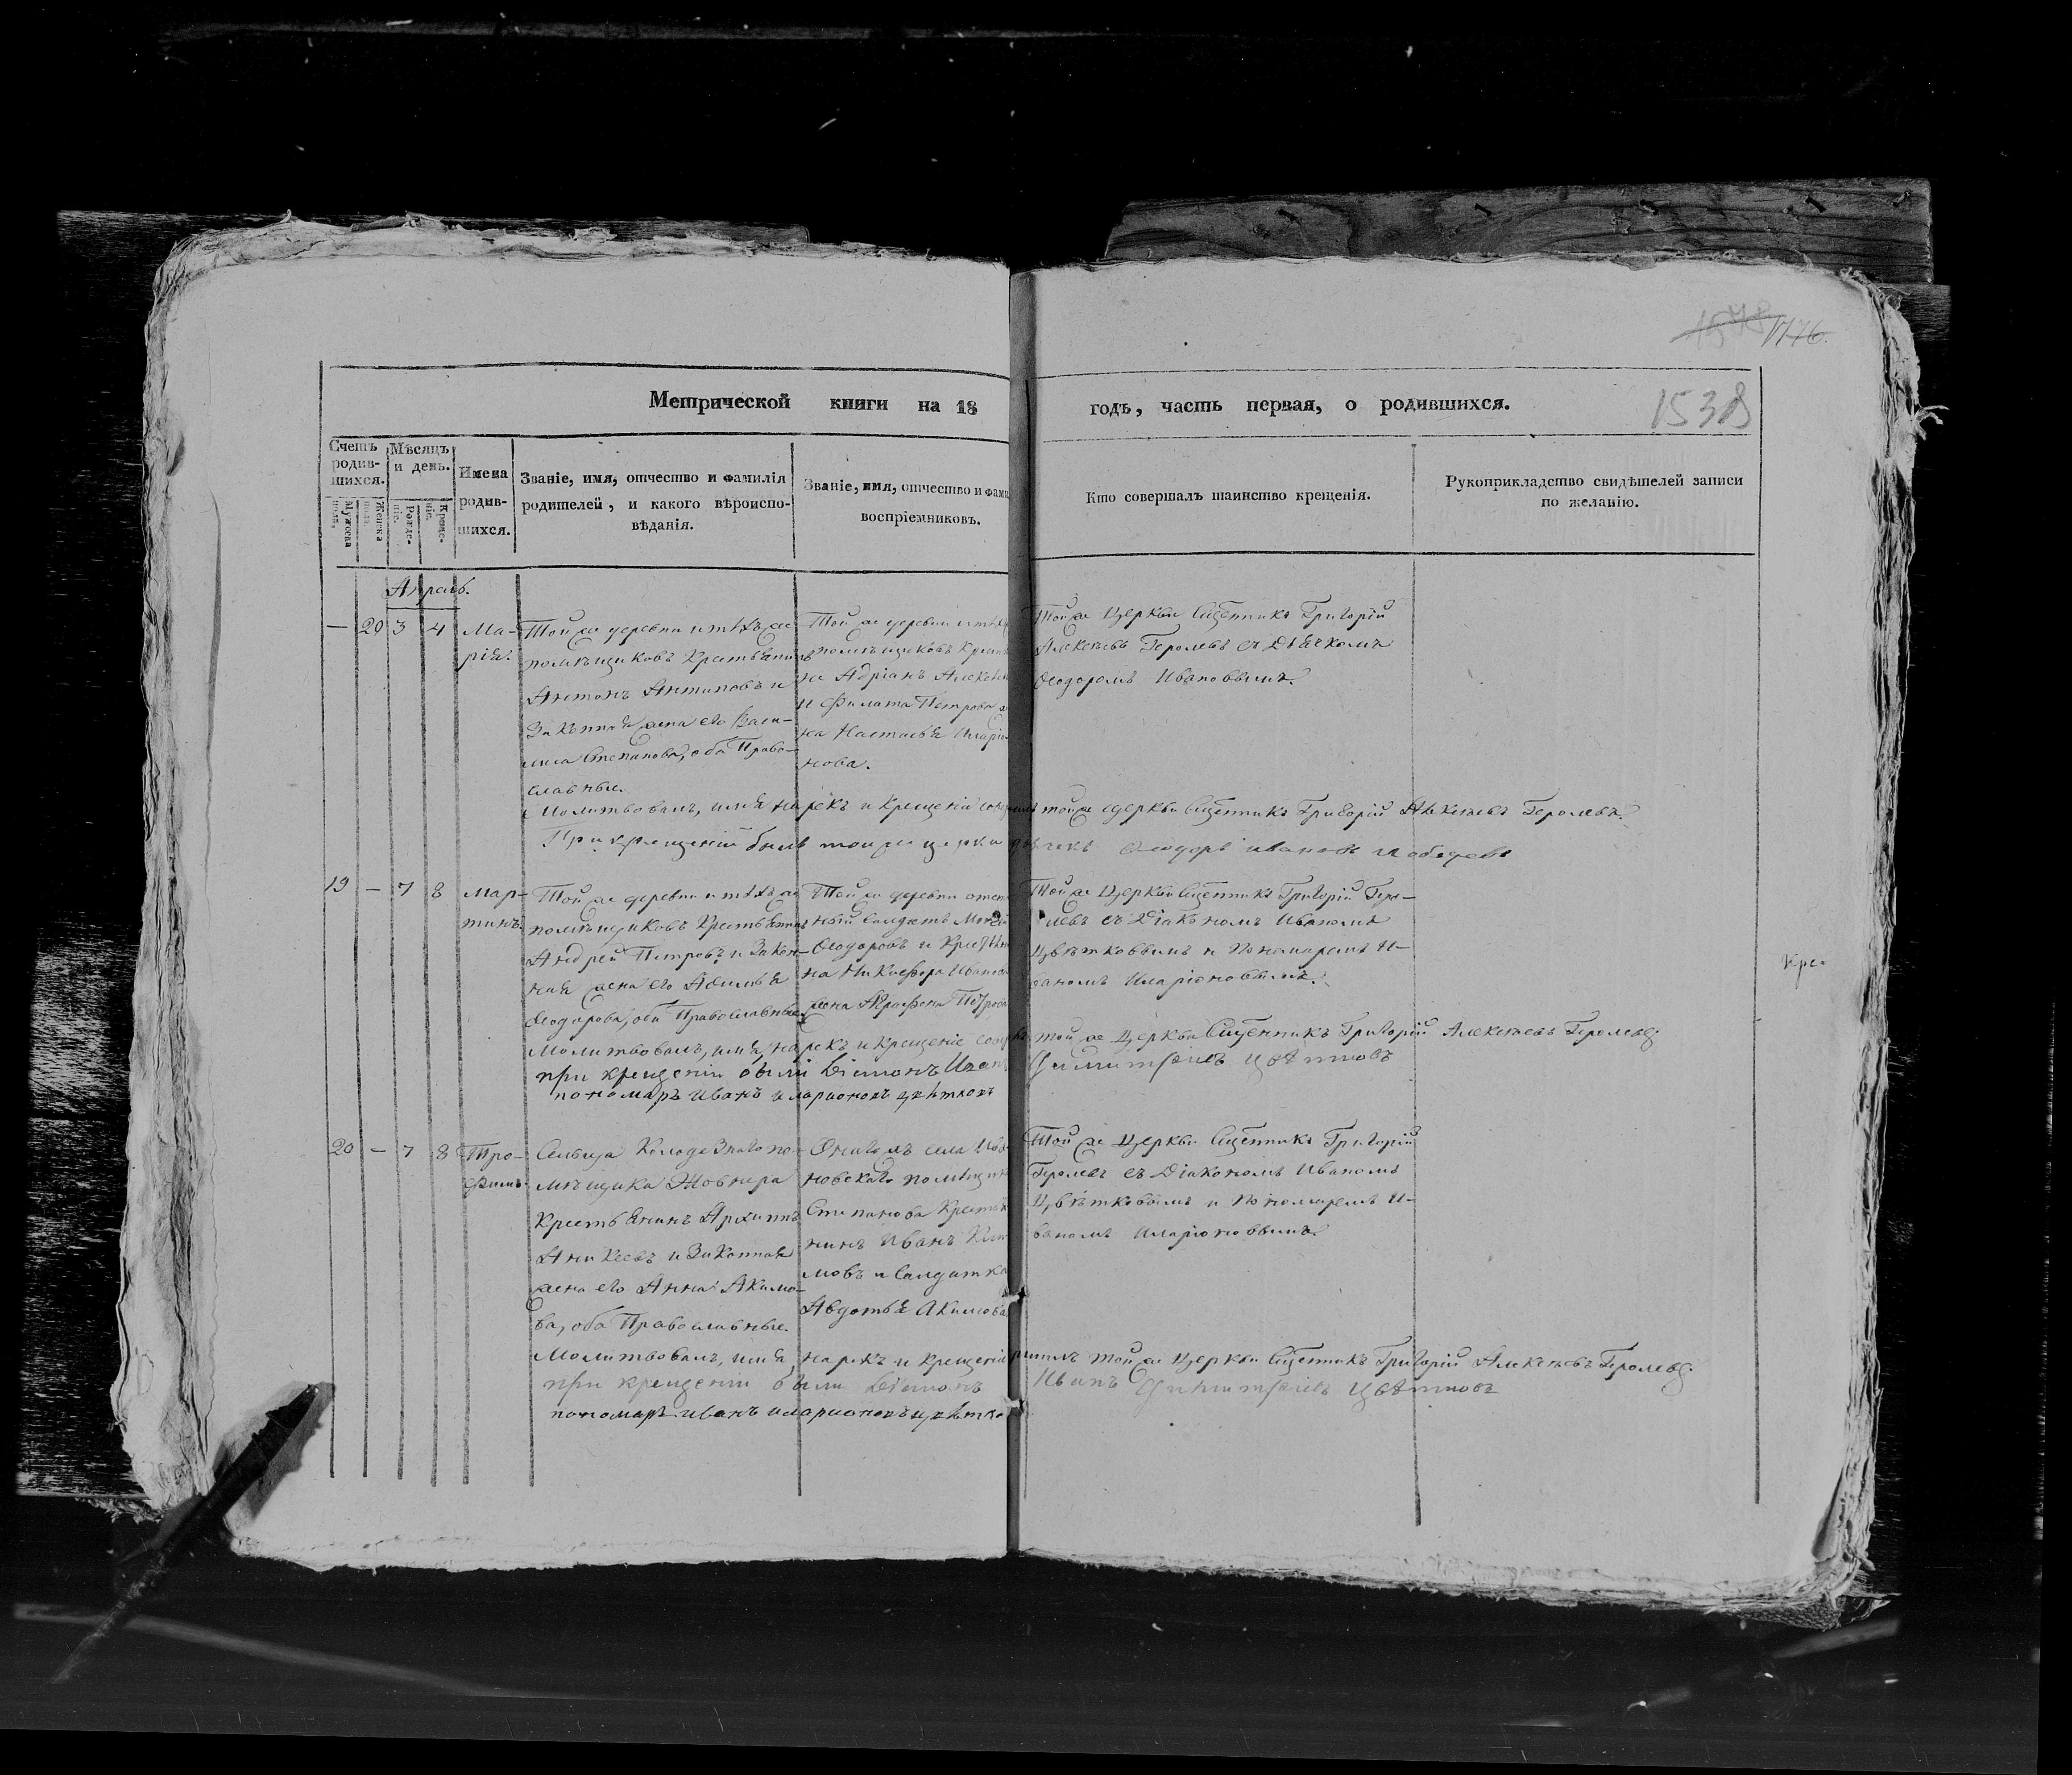 1776.
Метрической книги на 18 годъ, часть первая, о родившихся.
1538
Счетъ родив-шихся.
Мѣсяцъ и день.
Имена родив-шихся.
Званіе, имя, отчество и фамилія
родителей, и какого вѣроиспо-
вѣданія.
Званіе, имя, отчество и фами
воспріемниковъ.
Кто совершалъ таинство крещенія.
Рукоприкладство свидѣтелей записи
по желанію.
Мужеска пола.
Женска пола.
Рожде-ніе.
Креще-ніе.
Апрель.
— 20 3 4
Ма-
рія.
Той же деревни и тѣхъ же
помѣщиковъ Крестьянинъ
Антонъ Антиповъ и
Законная жена его Васи-
лиса Степанова, оба Право-
славные.
Той же деревни и тѣхъ
помѣщиковъ
Адріанъ Алексѣе
и Филата Петрова
ка Настасья Иларіо-
нова.
Той же Церкви Сщенникъ Григорій
Алексѣевъ Геролевъ съ Дьячкомъ
Ѳеодоромъ Ивановымъ.
Молитвовалъ, имя нарекъ и Крещеніе той же церкви Сщенникъ Григорій Алексѣевъ Геролевъ.
При крещеніи былъ тойже церкви Ѳеодоръ Ивановъ
19 — 7 8
Мар-
тинъ.
Той же деревни и тѣхъ же
помѣщиковъ Крестьянинъ
Андрей Петровъ и Закон-
ная жена его
Ѳеодорова, оба Православные.
Той же деревни
ный Салдатъ
Ѳеодоровъ и
на Никифора Иванова
жена Аграфена Петрова
Той же Церкви Сщенникъ Григорій Геро-
левъ съ Діакономъ Иваномъ
Цвѣтковымъ и Пономаремъ И-
ваномъ Иларіоновымъ.
Кре-
Молитвовалъ, имя нарекъ и крещеніе той же Церкви Сщенникъ Григорій Алексѣевъ Геролевъ
при крещеніи были Діаконъ Иван Димитріевъ Цвѣтковъ
пономаръ Иванъ Иларионовъ Цвѣтковъ
20 — 7 8
Тро-
фимъ.
Сельца Колодезнаго по-
мѣщика
Крестьянинъ Архиппъ
Аникеевъ и Законная
жена его Анна Акимо-
ва, оба Православные.
села
новскаго помѣщик
Степанова Крестья
нинъ Иванъ
мовъ и Салдатка
Авдотья Акимова
Той же Церкви Сщенникъ Григорій
Геролевъ съ Діакономъ Иваномъ
Цвѣтковымъ и Пономаремъ И-
ваномъ Иларіоновымъ.
Молитвовалъ, имя нарекъ и крещеніе той же Церкви Сщенникъ Григорій Алексѣевъ Геролевъ
при крещеніи были Діаконъ Иванъ Димитріевъ Цвѣтковъ
пономаръ Иванъ Иларионовъ Цвѣтко